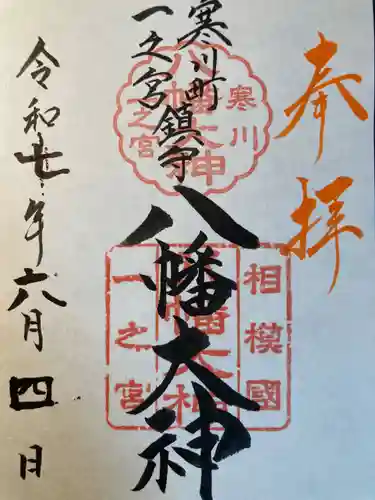 奉拝
寒川町鎮守
一之宮
八幡大神
令和七年六月四日
寒川
八幡大神
一之宮
相模國
八幡大神
一之宮